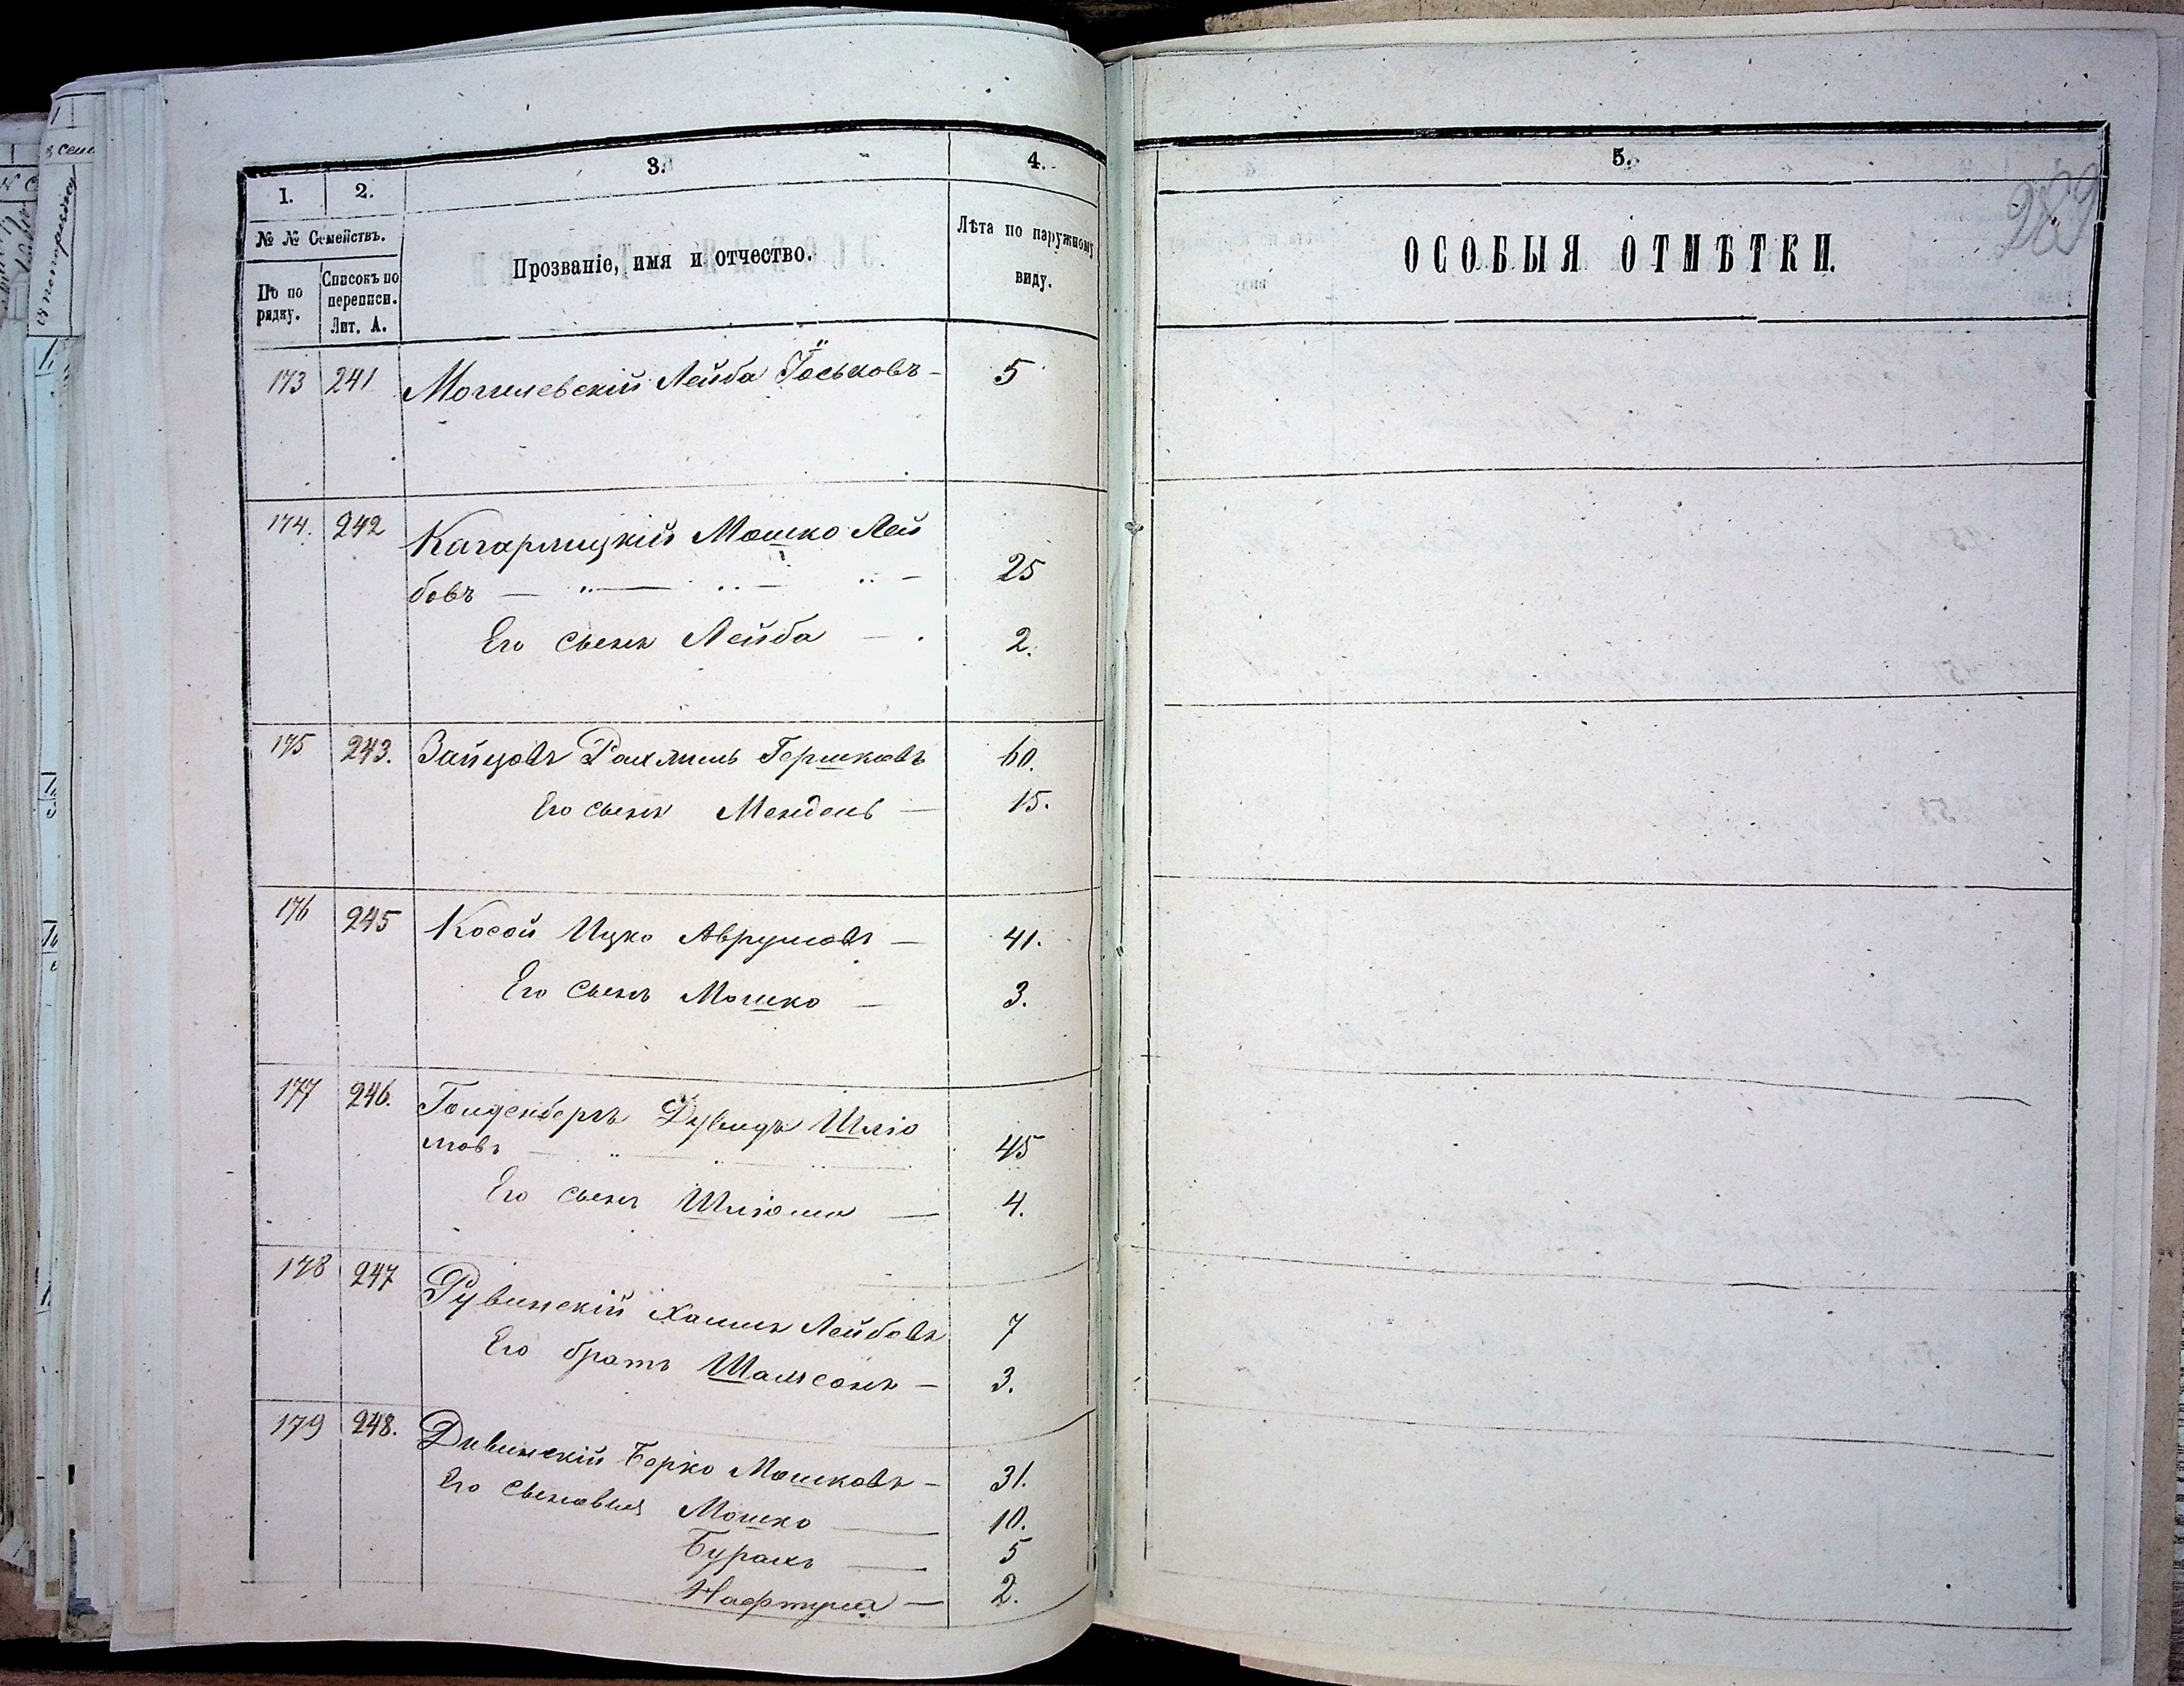 1.
2.
3.
4.
№ № Семействъ.
По по
рядку.
Списокъ по
переписи.
Лит. А.
Прозваніе, имя и отчество.
Лѣта по наружному
виду.
173 241 Могилевскій Лейба Іоськовъ — 5
174. 242 Кагарлицкій Мошко Лей
бовъ — 25
Его сынъ Лейба — 2.
175 243. Зайцовъ Рахмиль Гершковъ 60.
Его сынъ Мендель — 15.
176 245 Косой Ицко Аврумовъ — 41.
Его сынъ Мошко — 3.
177 246. Голденбергъ Дувидъ Шліо
мовъ — 45
Его сынъ Шліома — 4.
178 247 Рувинскій Хаимъ Лейбовъ 7
Его братъ Шамсонъ — 3.
179 248. Дивинскій Берко Мошковъ — 31.
Его сыновья Мошко — 10.
Бурахъ — 5
Нафтула — 2.
5.
ОСОБЫЯ ОТМѢТКИ.
289